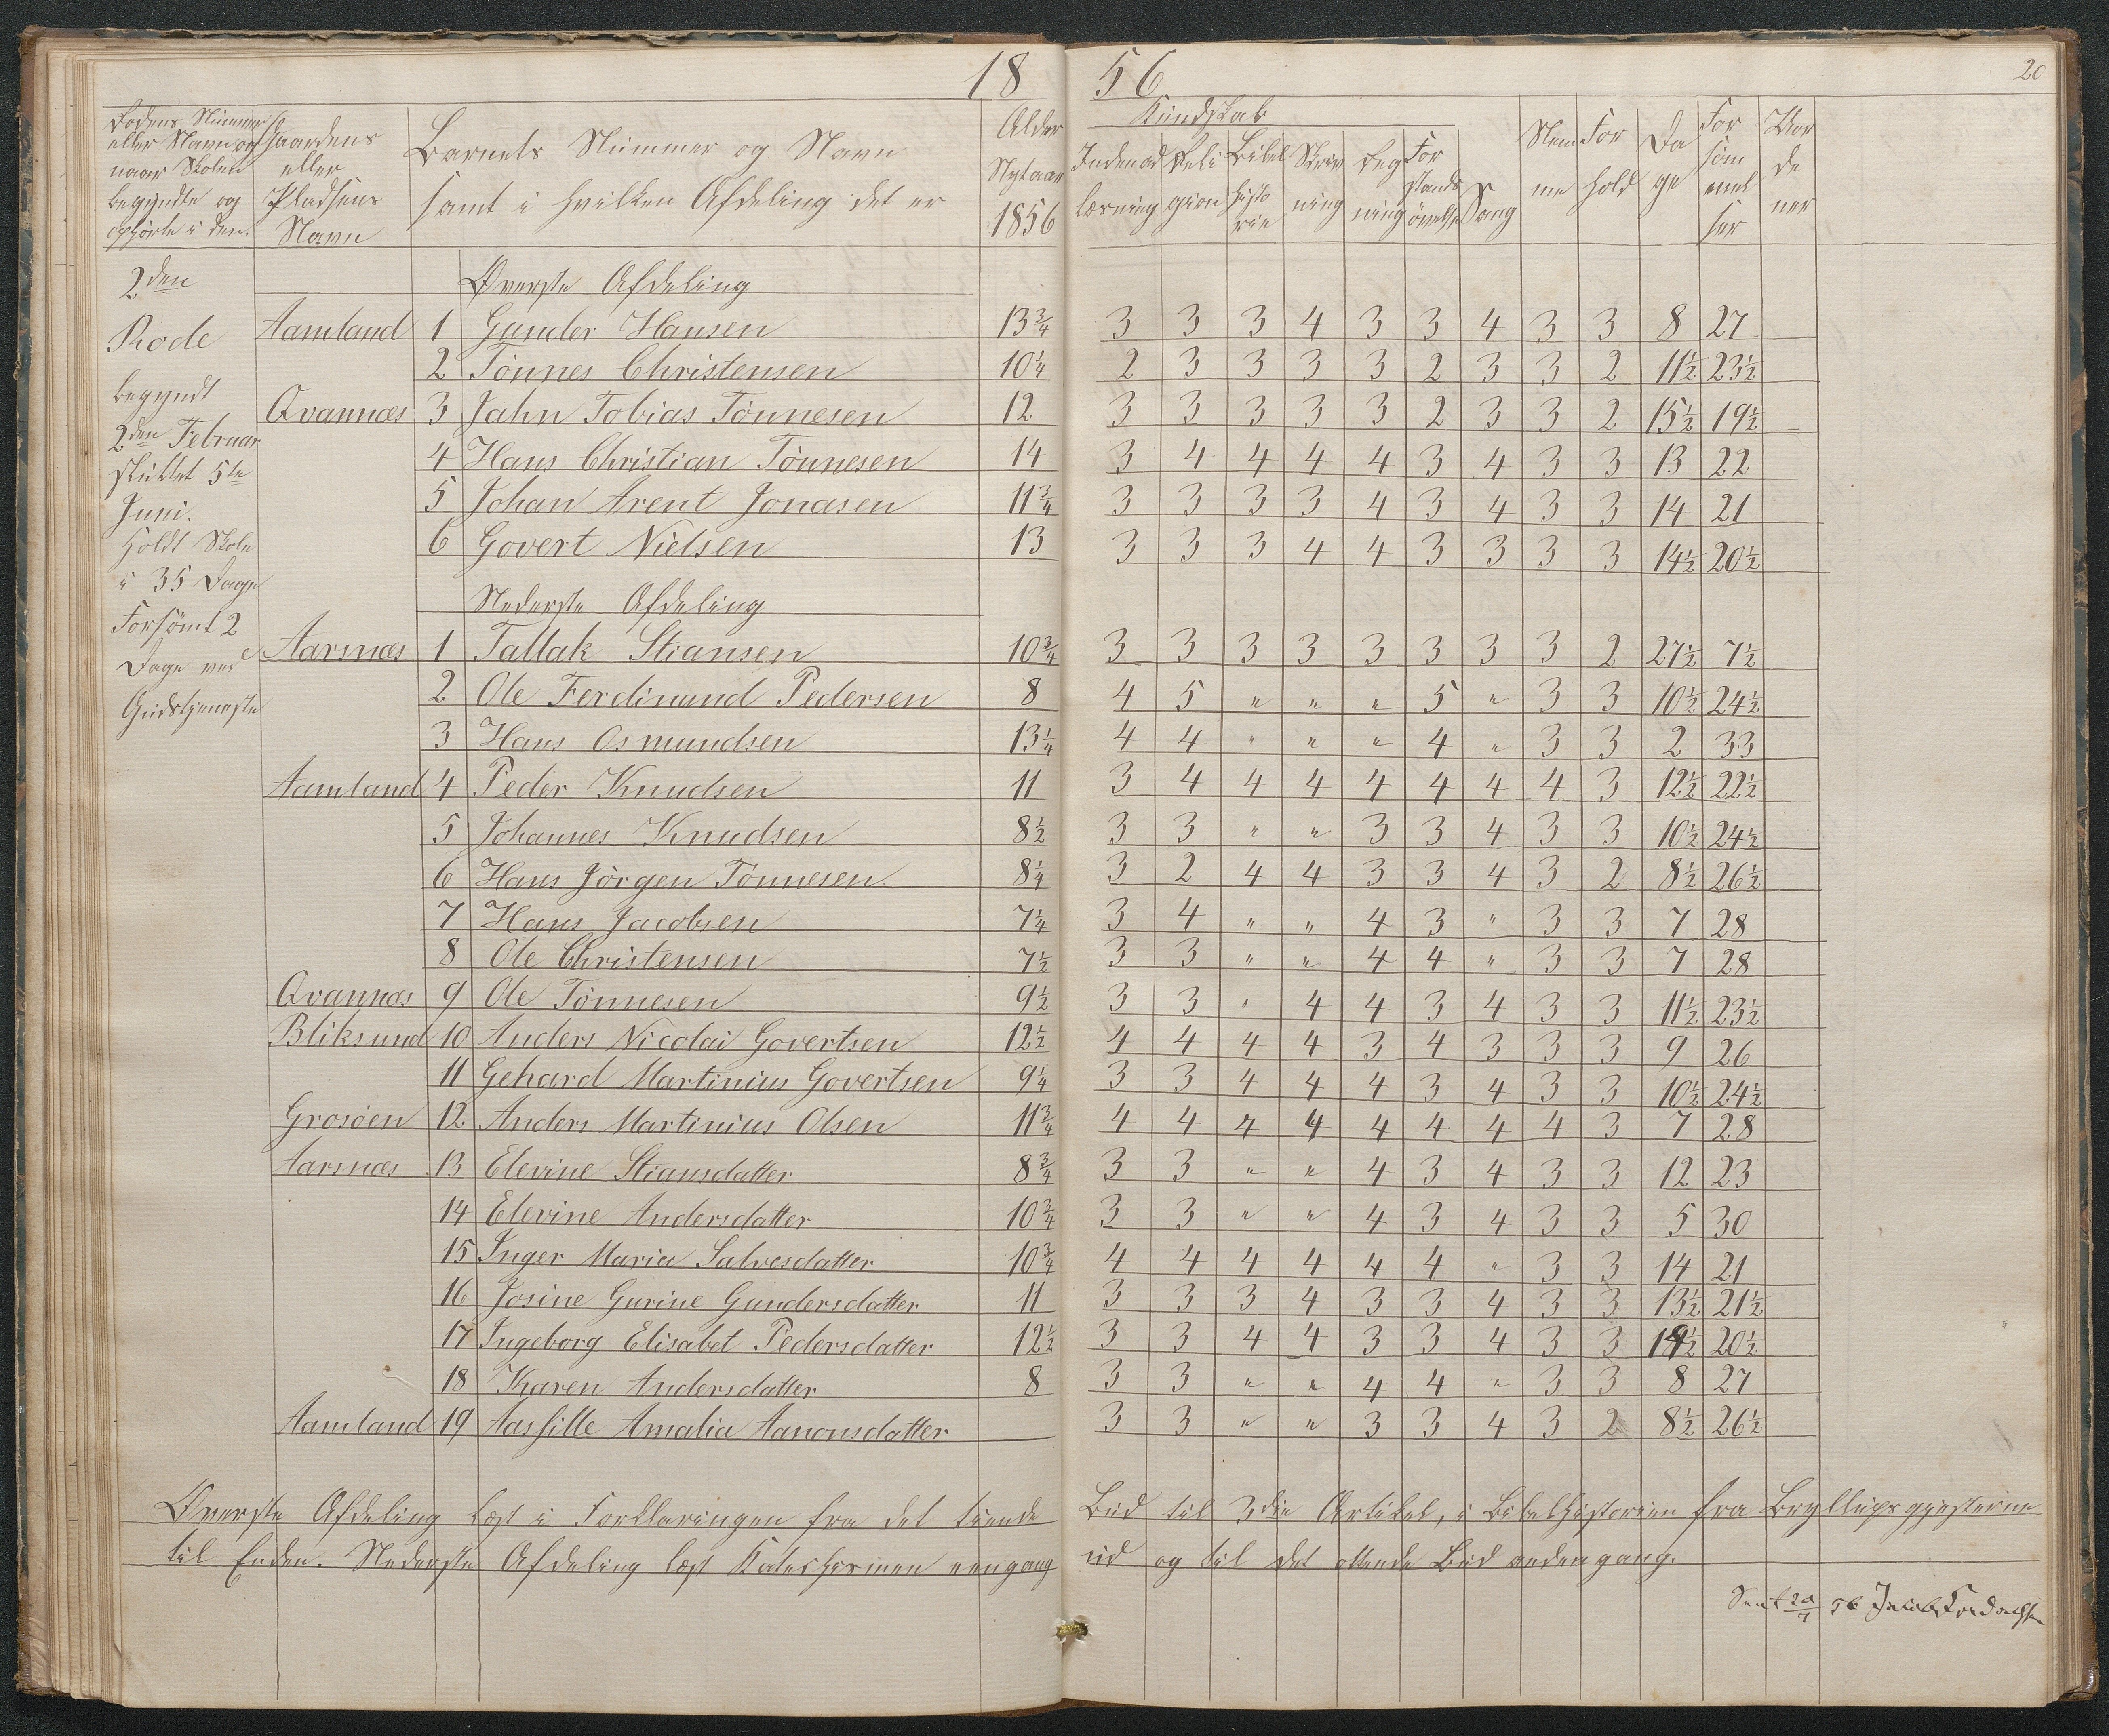 18 56
20
Rodens Nummer eller Navn og naar Skolen begyndte og ophörte i den.
Gaardens eller Pladsens Navn
Barnets Nummer og Navn samt i hvilken Afdeling det er
Alder Nytaar 1856
Kundskab
Indenad læsning
Religion
Bibelhistorie
Skrivning
Regning
Forstands övelse
Sang
Nemme
Forhold
Dage
Forsömmelser
2den
Rode
begyndt
2den Februar
sluttet 5te
Juni.
Holdt Skole
i 35 Dage
Forsömt 2
Dage ved
Gudstjeneste
Øverste Afdeling
Aamland 1 Gunder Hansen 13¾ 3 3 3 4 3 3 4 3 3 8 27
2 Tönnes Christensen 10¼ 2 3 3 3 3 2 3 3 2 11½ 23½
Qvannæs 3 Jahn Tobias Tönnesen 12 3 3 3 3 3 2 3 3 2 15½ 19½
4 Hans Christian Tönnesen 14 3 4 4 4 4 3 4 3 3 13 22
5 Johan Arent Jonasen 11¾ 3 3 3 3 4 3 4 3 3 14 21
6 Govert Nielsen 13 3 3 3 4 4 3 3 3 3 14½ 20½
Nederste Afdeling
Aarsnæs 1 Tallak Stiansen 10¾ 3 3 3 3 3 3 3 3 2 27½ 7½
2 Ole Ferdinand Pedersen 8 4 5 " " " 5 " 3 3 10½ 24½
3 Hans Osmundsen 13¼ 4 4 " " " 4 " 3 3 2 33
Aamland 4 Peder Knudsen 11 3 4 4 4 4 4 4 4 3 12½ 22½
5 Johannes Knudsen 8½ 3 3 " " 3 3 4 3 3 10½ 24½
6 Hans Jörgen Tönnesen 8¼ 3 2 4 4 3 3 4 3 2 8½ 26½
7 Hans Jacobsen 7¼ 3 4 " " 4 3 " 3 3 7 28
8 Ole Christensen 7½ 3 3 " " 4 4 " 3 3 7 28
Qvannæs 9 Ole Tönnesen 9½ 3 3 " 4 4 3 4 3 3 11½ 23½
Bliksund 10 Anders Nicolai Govertsen 12½ 4 4 4 4 3 4 3 3 3 9 26
11 Gehard Martinius Govertsen 9¼ 3 3 4 4 4 3 4 3 3 10½ 24½
Grosöen 12 Anders Martinius Olsen 11¾ 4 4 4 4 4 4 4 4 3 7 28
Aarsnæs 13 Elevine Stiansdatter 8¾ 3 3 " " 4 3 4 3 3 12 23
14 Elevine Andersdatter 10¾ 3 3 " " 4 3 4 3 3 5 30
15 Inger Maria Salvesdatter 10¾ 4 4 4 4 4 4 " 3 3 14 21
16 Josine Gurine Gundersdatter 11 3 3 3 4 3 3 4 3 3 13½ 21½
17 Ingeborg Elisabet Pedersdatter 12½ 3 3 4 4 3 3 4 3 3 14½ 20½
18 Karen Andersdatter 8 3 3 " " 4 4 " 3 3 8 27
Aamland 19 Aassille Amalia Aanonsdatter 3 3 " " 3 3 4 3 2 8½ 26½
Øverste Afdeling læst i Forklaringen fra det tiende Bud til 3die Artikel, i Bibelhistorien fra Bryllupsgjesterne
til Enden. Nederste Afdeling læst Katechismen eengang ud og til det ottende Bud anden gang.
56 Jacob